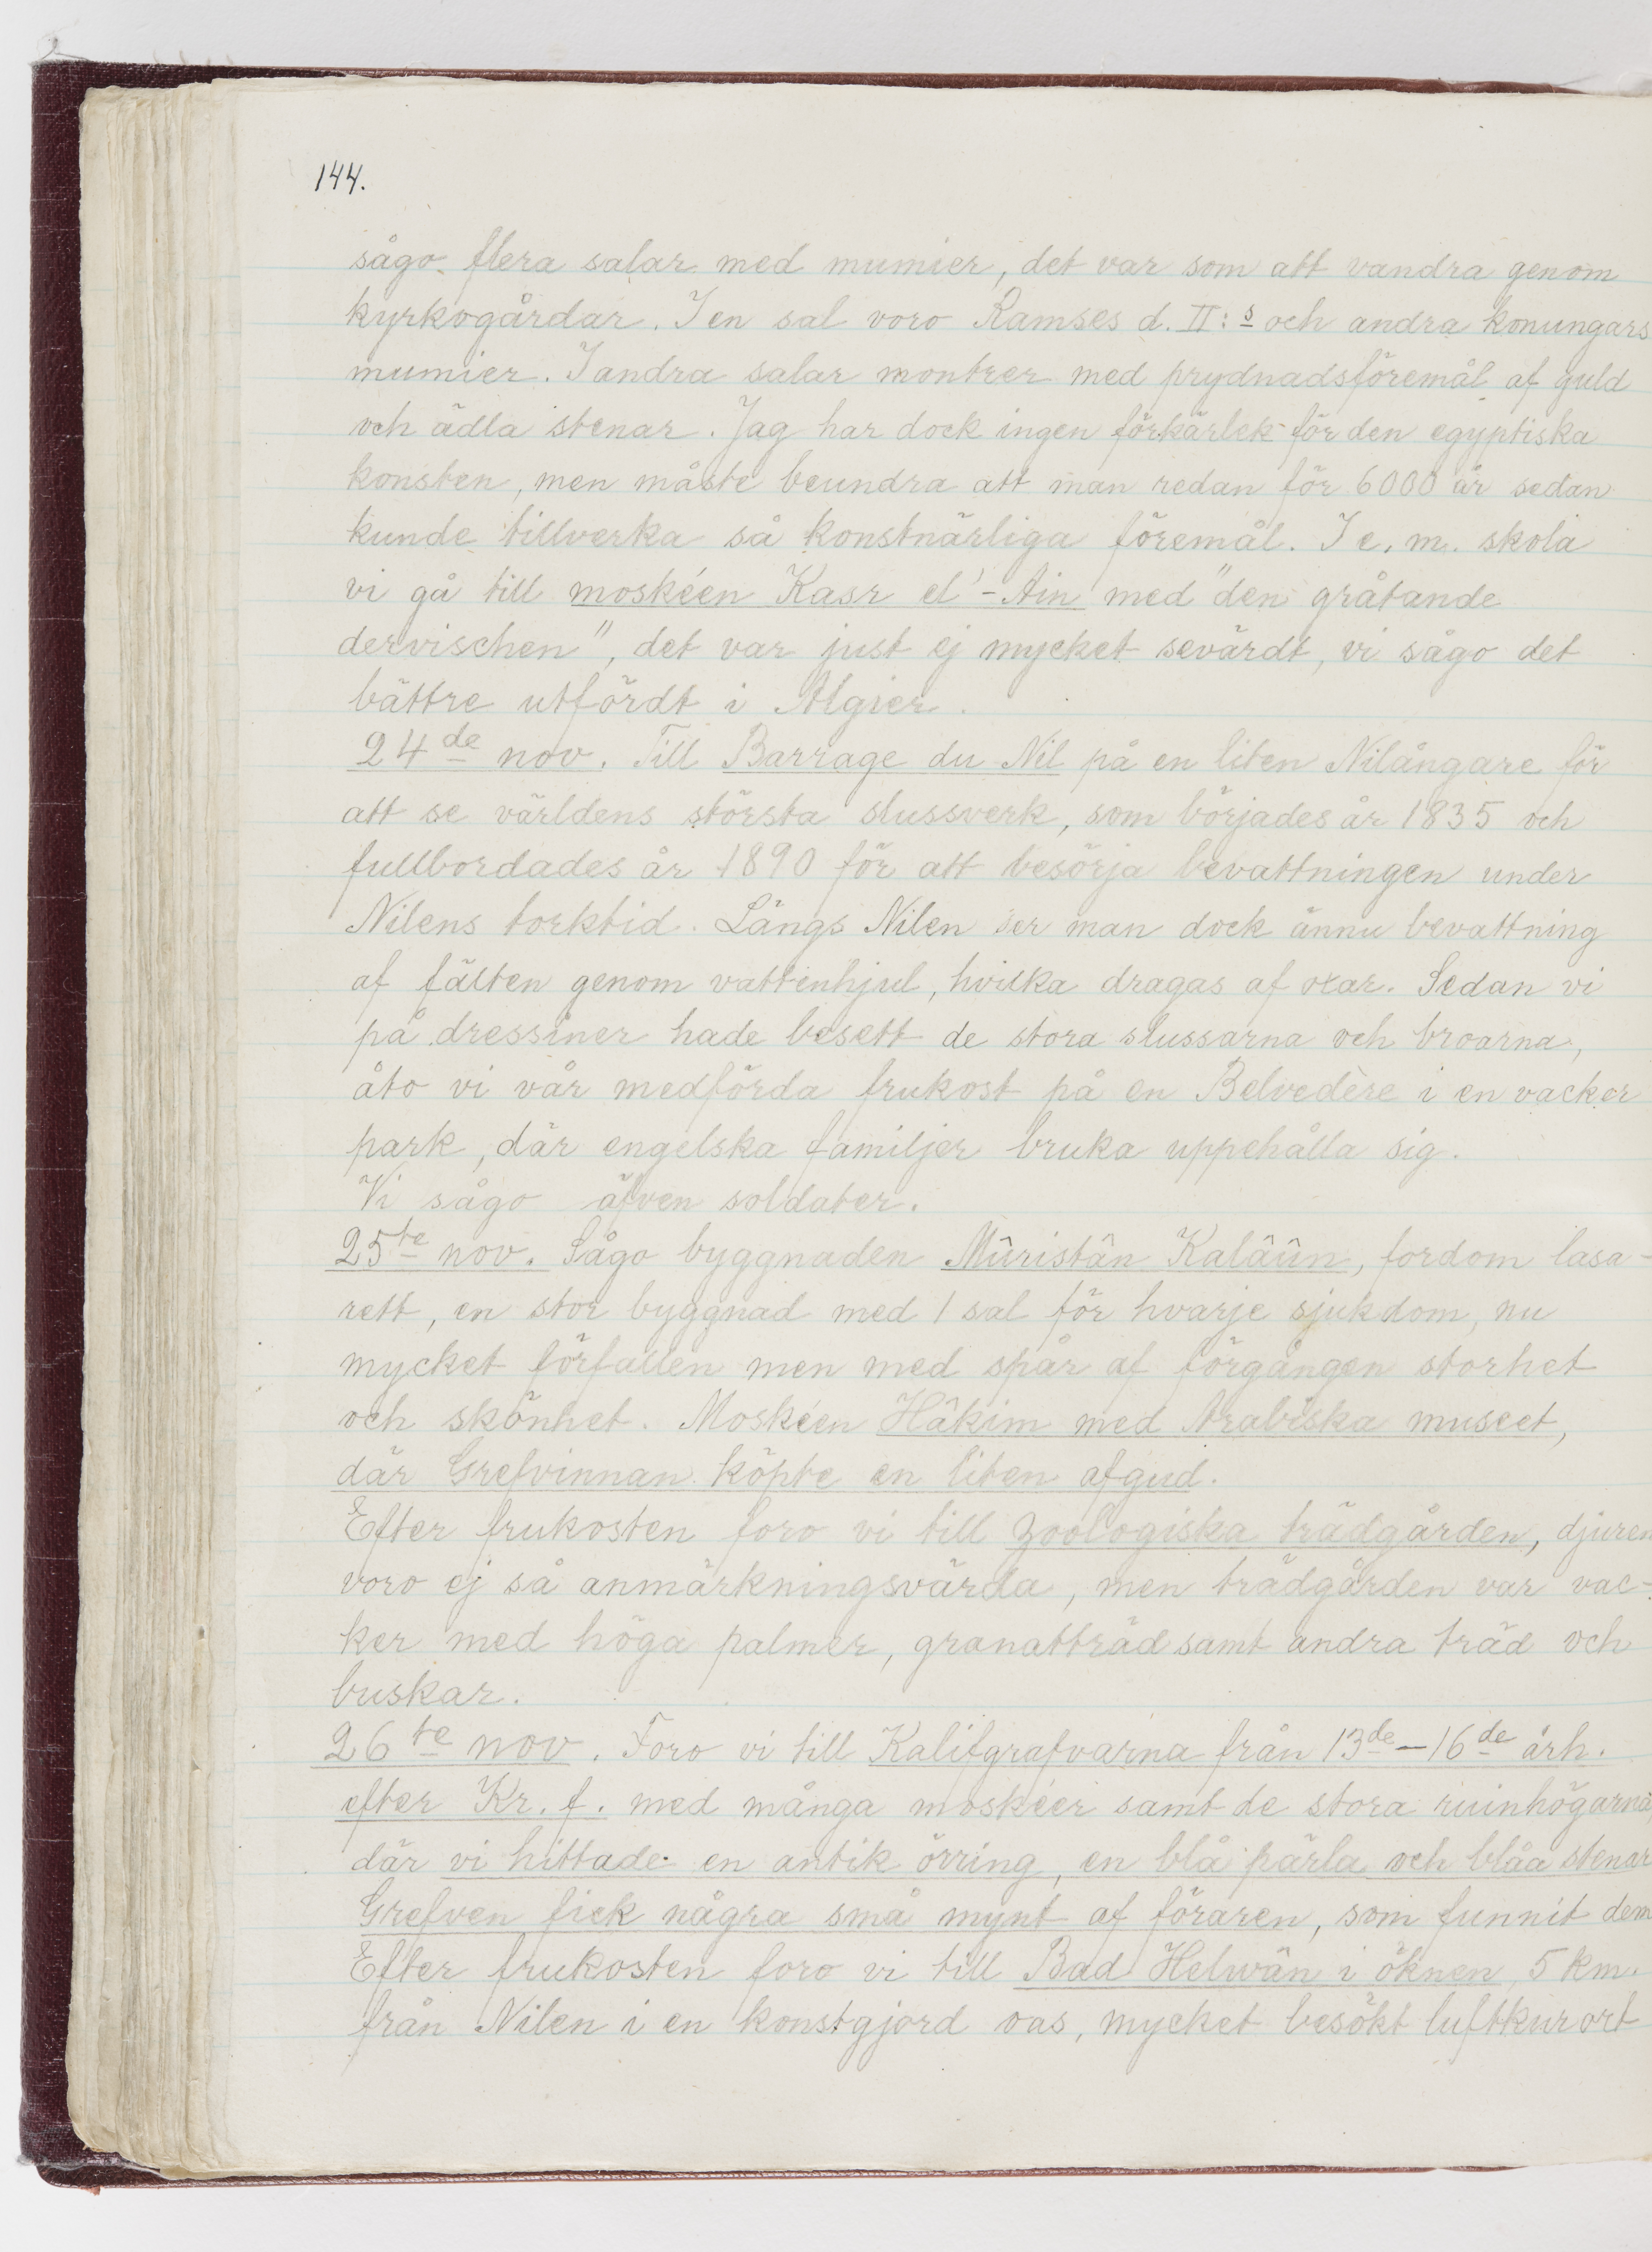 144.
sågo flera salar med mumier, det var som att vandra genom
kyrkogårdar. I en sal voro Ramses d. II:s och andra konungars
mumier. I andra salar montrer med prydnadsföremål af guld
och ädla stenar. Jag har dock ingen förkärlek för den egyptiska
konsten, men måste beundra att man redan för 6000 år sedan
kunde tillverka så konstnärliga föremål. I e. m. skola
vi gå till moskéen Kasr el'-Ain med "den gråtande
dervischen", det var just ej mycket sevärdt, vi sågo det
bättre utfördt i Algier.
24de nov. Till Barrage du Nil på en liten Nilångare för
att se världens största slussverk, som börjades år 1835 och
fullbordades år 1890 för att besörja bevattningen under
Nilens torktid. Längs Nilen ser man dock ännu bevattning
af fälten genom vattenhjul, hvilka dragas af oxar. Sedan vi
på dressiner hade besett de stora slussarna och broarna,
åto vi vår medförda frukost på en Belvedère i en vacker
park, där engelska familjer bruka uppehålla sig.
Vi sågo äfven soldater.
25te nov. Sågo byggnaden Mûristân Kalâûn, fordom lasa-
rett, en stor byggnad med 1 sal för hvarje sjukdom, nu
mycket förfallen men med spår af förgången storhet
och skönhet. Moskéen Hâkim med Arabiska museet,
där Grefvinnan köpte en liten afgud.
Efter frukosten foro vi till zoologiska trädgården, djuren
voro ej så anmärkningsvärda, men trädgården var vac-
ker med höga palmer, granatträd samt andra träd och
buskar.
26te nov. Foro vi till Kalifgrafvarna från 13de-16de årh.
efter Kr. f. med många moskéer samt de stora ruinhögarna,
där vi hittade en antik örring, en blå pärla och blåa stenar
Grefven fick några små mynt af föraren, som funnit dem
Efter frukosten foro vi till Bad Helwân i öknen, 5 km.
från Nilen i en konstgjord oas, mycket besökt luftkurort